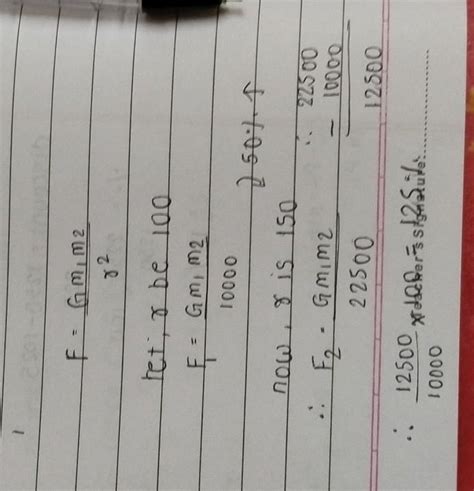 1
F = Gm₁m₂
r²
let, r be 100
F₁ = Gm₁m₂
10000
50% ↑
now, r is 150
∴ F₂ = Gm₁m₂
22500
∴ 22500
- 10000
12500
∴ 12500 x 100 = 125%
10000
Teacher's signature: